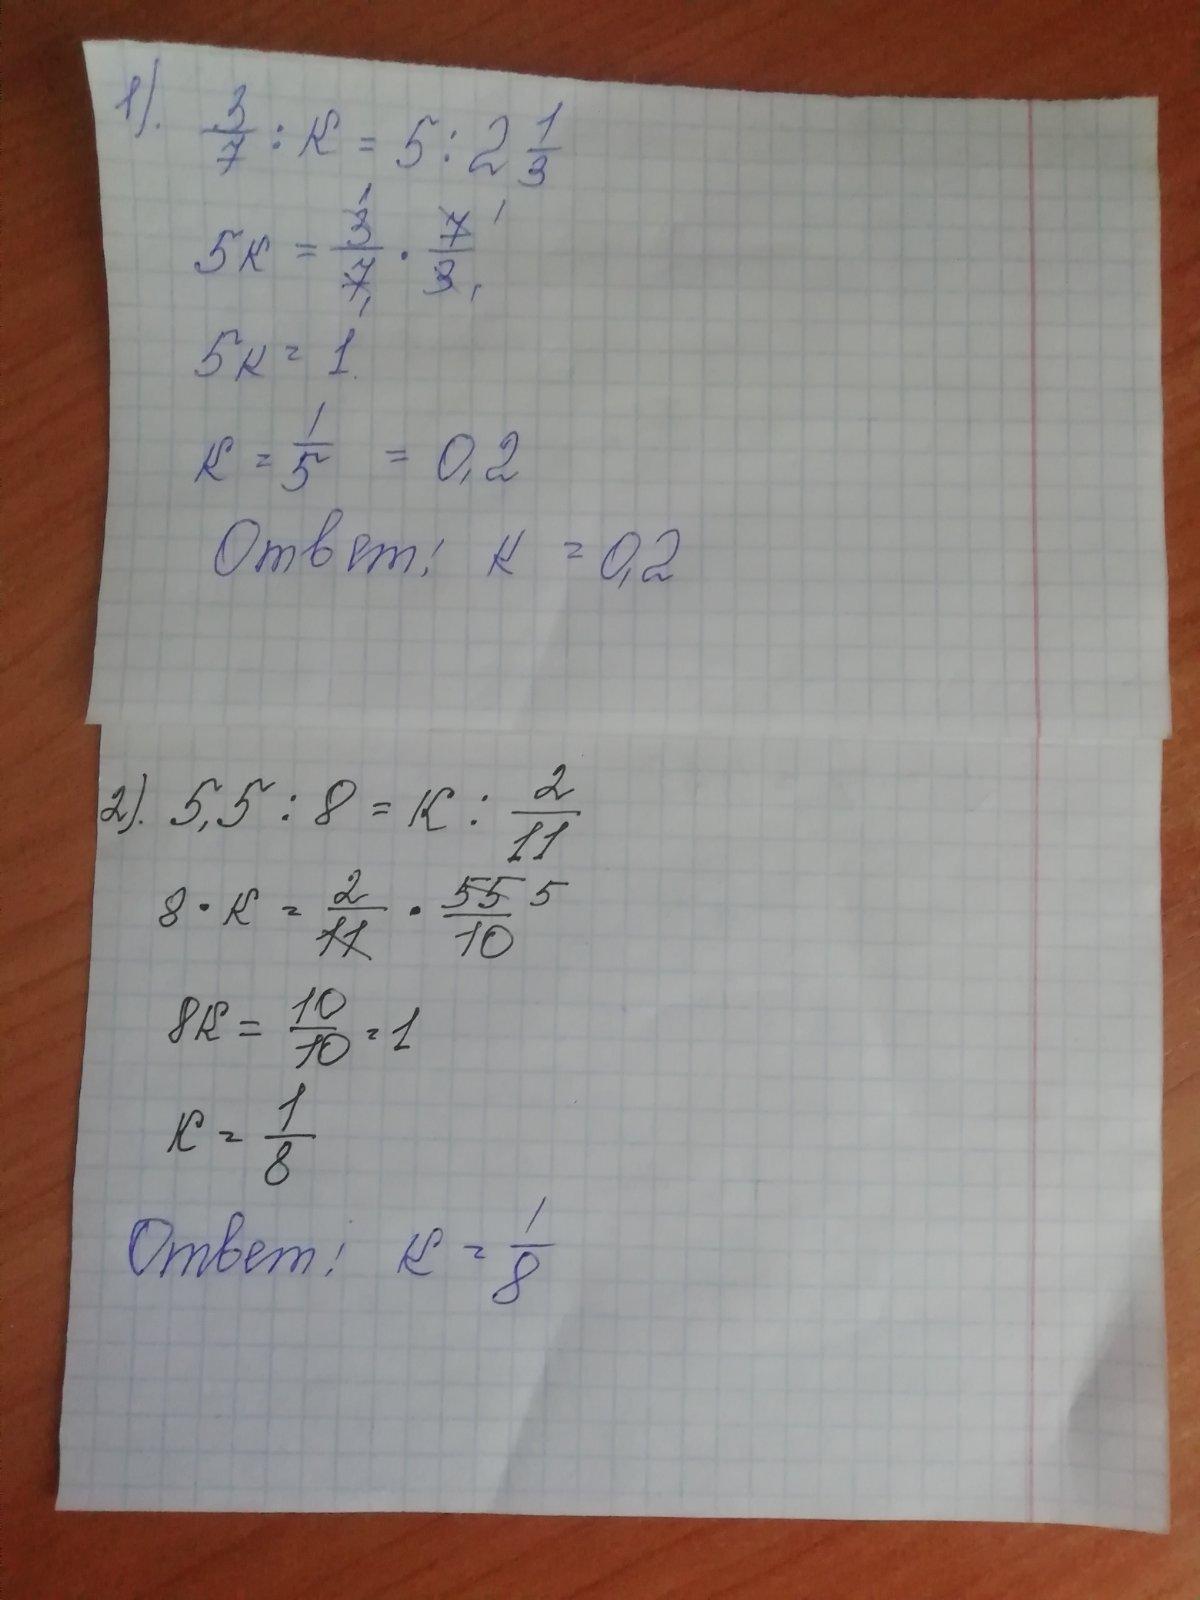 1). 3/7 : К = 5 : 2 1/3
5К = 3/7 · 7/3
5К = 1
К = 1/5 = 0,2
Ответ: К = 0,2
2). 5,5 : 8 = К : 2/11
8 · К = 2/11 · 55/10 5
8К = 10/10 = 1
К = 1/8
Ответ: К = 1/8